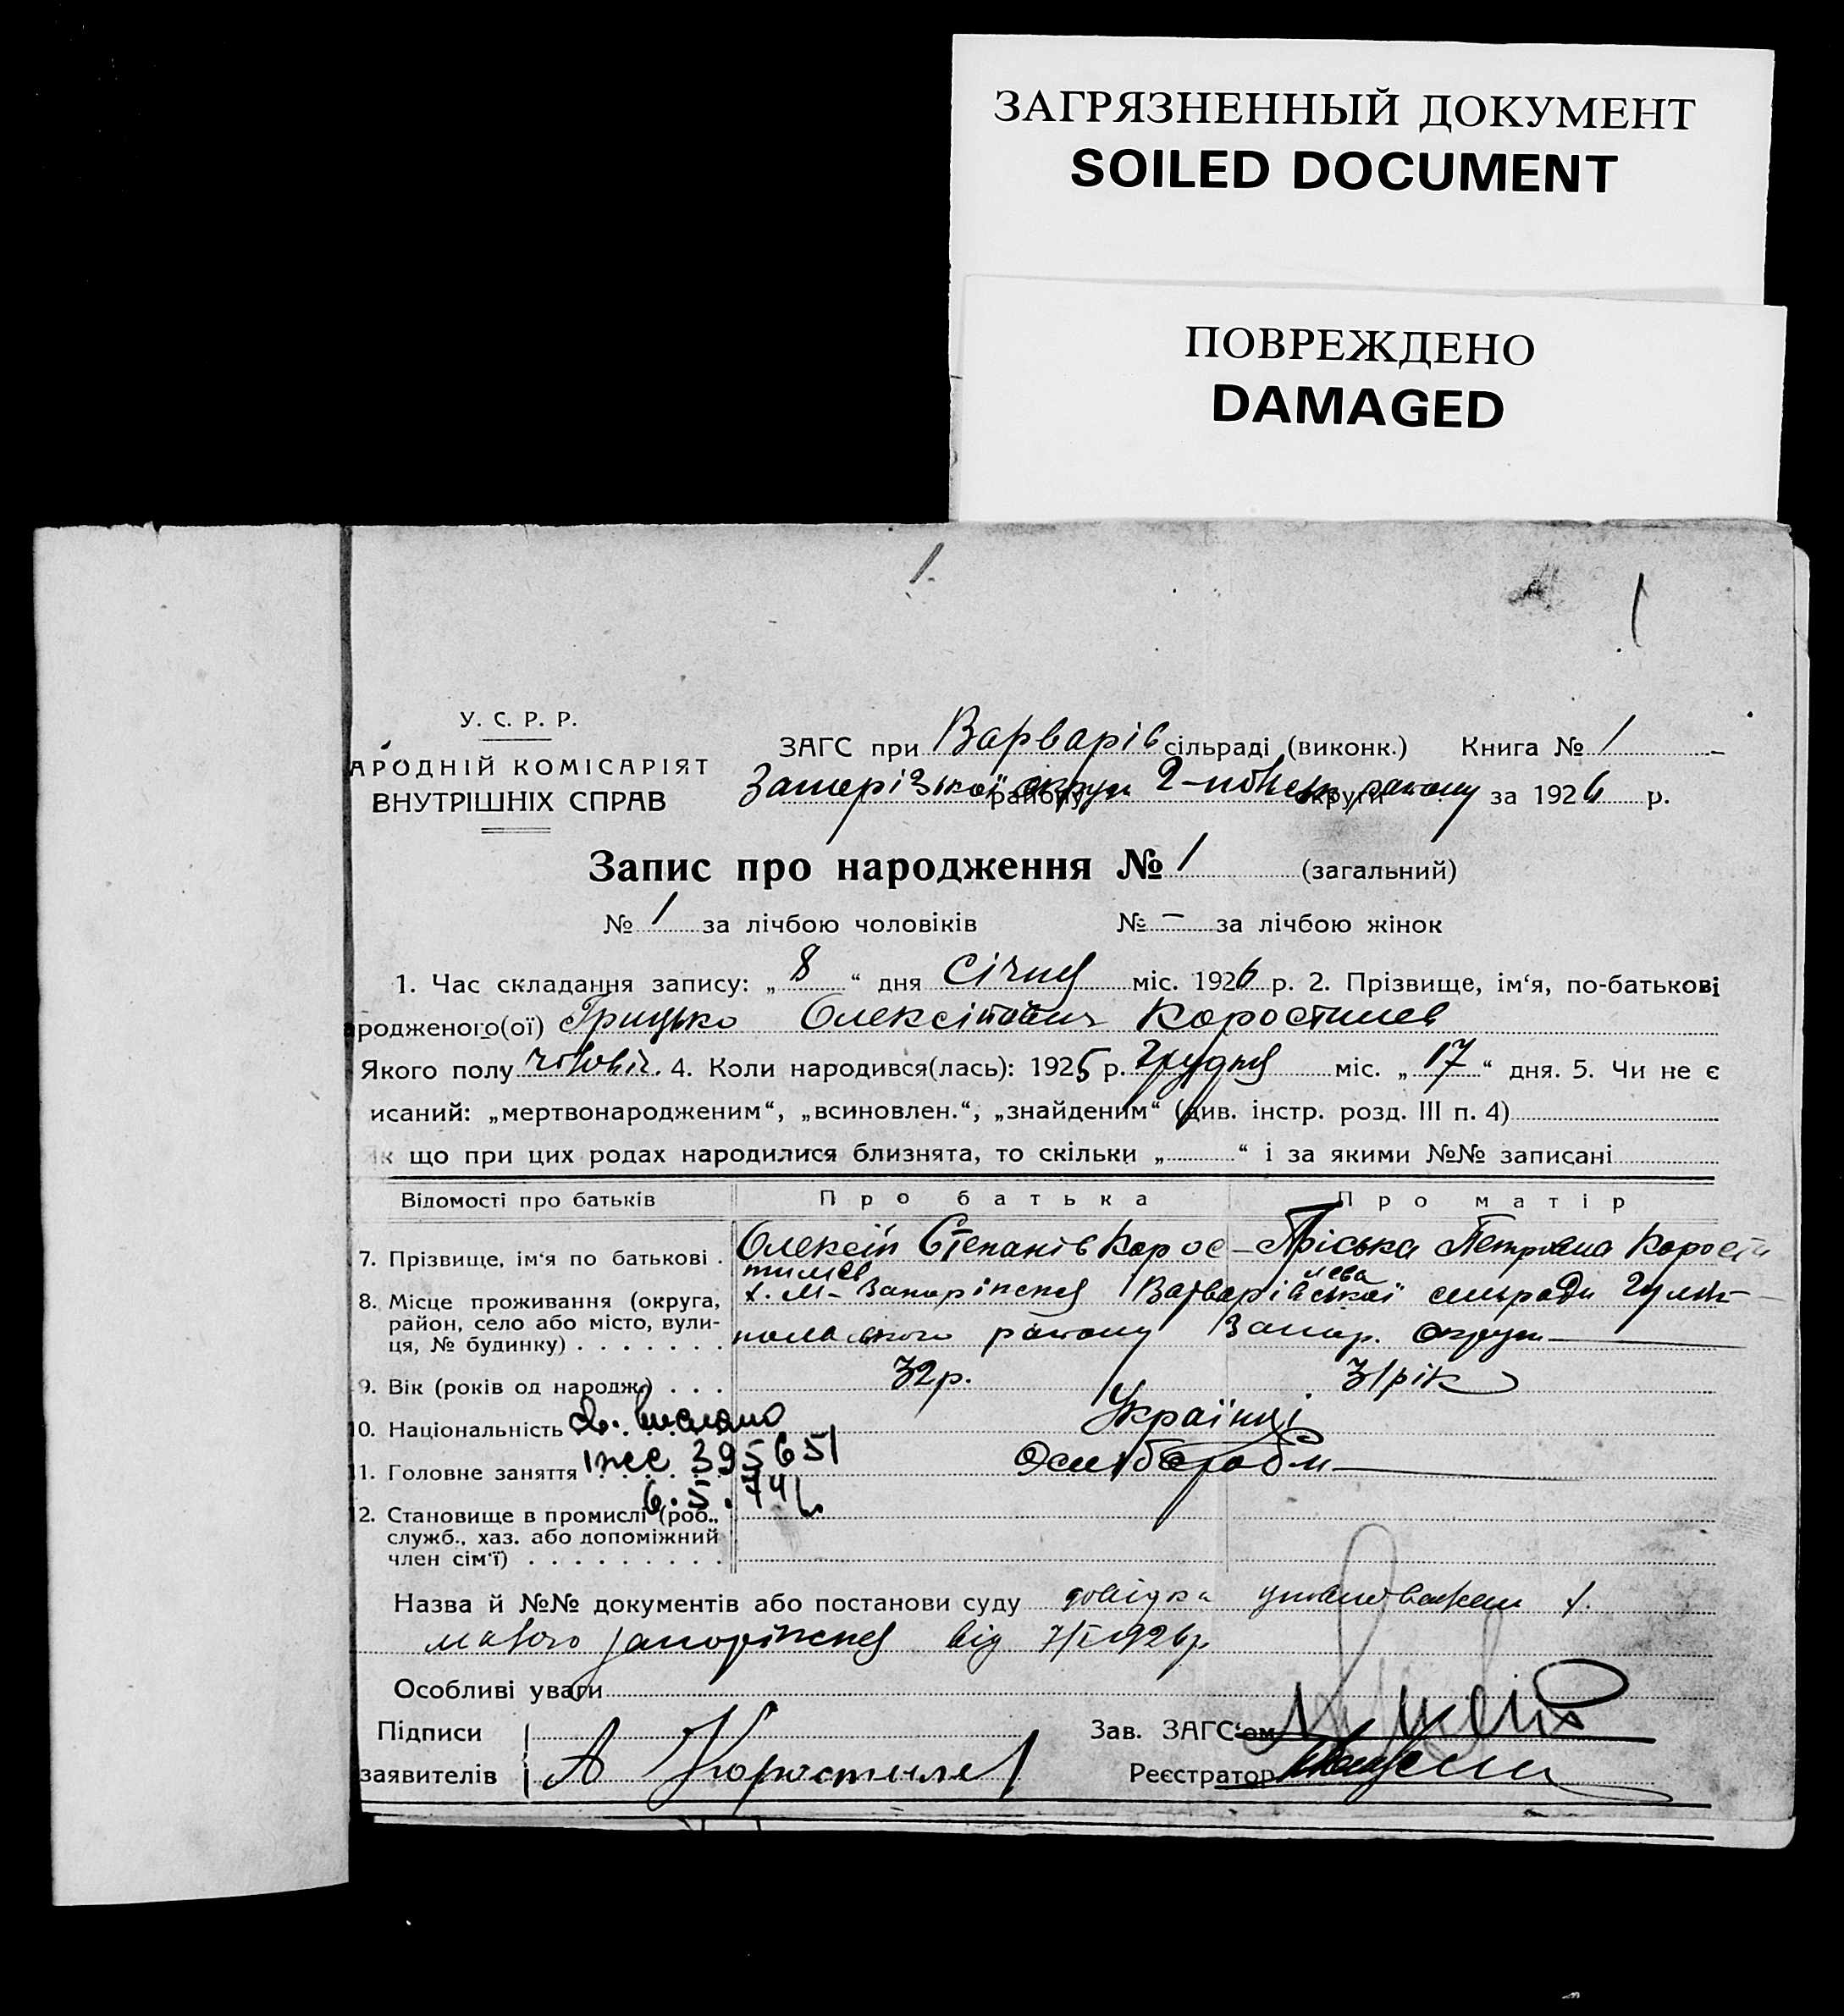 ЗАГРЯЗНЕННЫЙ ДОКУМЕНТ
SOILED DOCUMENT
ПОВРЕЖДЕНО
DAMAGED
1.
1
У. С. Р. Р.
АРОДНІЙ КОМІСАРІЯТ
ВНУТРІШНІХ СПРАВ
ЗАГС при Варварів сільраді (виконк.) Книга № 1
Запорізької округи району округи району за 1926 р.
Запис про народження № 1 (загальний)
№ 1 за лічбою чоловіків № – за лічбою жінок
1. Час складання запису: „ 8 “ дня Січня міс. 1926 р. 2. Прізвище, ім‘я, по-батькові
родженого(ої) Грицько Олексійович Коростилев
Якого полу чоловіч. 4. Коли народився(лась): 1925 р. Грудня міс. „ 17 “ дня. 5. Чи не є
исаний: „мертвонародженим“, „всиновлен.“, „знайденим“ (див. інстр. розд. III п. 4)
Як що при цих родах народилися близнята, то скільки „ “ і за якими №№ записані
Відомості про батьків Про батька Про матір
7. Прізвище, ім‘я по батькові . Олексій Степанів Корос- Пріська Петровна Корости
тилев лева
8. Місце проживання (округа, х. М-Запоріжжя Варварівської сільради Гуляй-
район, село або місто, вули-
ця, № будинку) . . . . . . . польського району Запор. округи
9. Вік (років од народж.) . . . 32 р. 31 рік
10. Національність Українці
11. Головне заняття 395651
6.5.74
12. Становище в промислі (роб.,
служб., хаз. або допоміжний
член сім‘ї) . . . . . . . . .
Назва й №№ документів або постанови суду довідка уповноважен х.
малого Запоріжжя від 7/I 1926 р
Особливі уваги
Підписи Зав. ЗАГС‘ом
заявителів А Коростилев Реєстратор